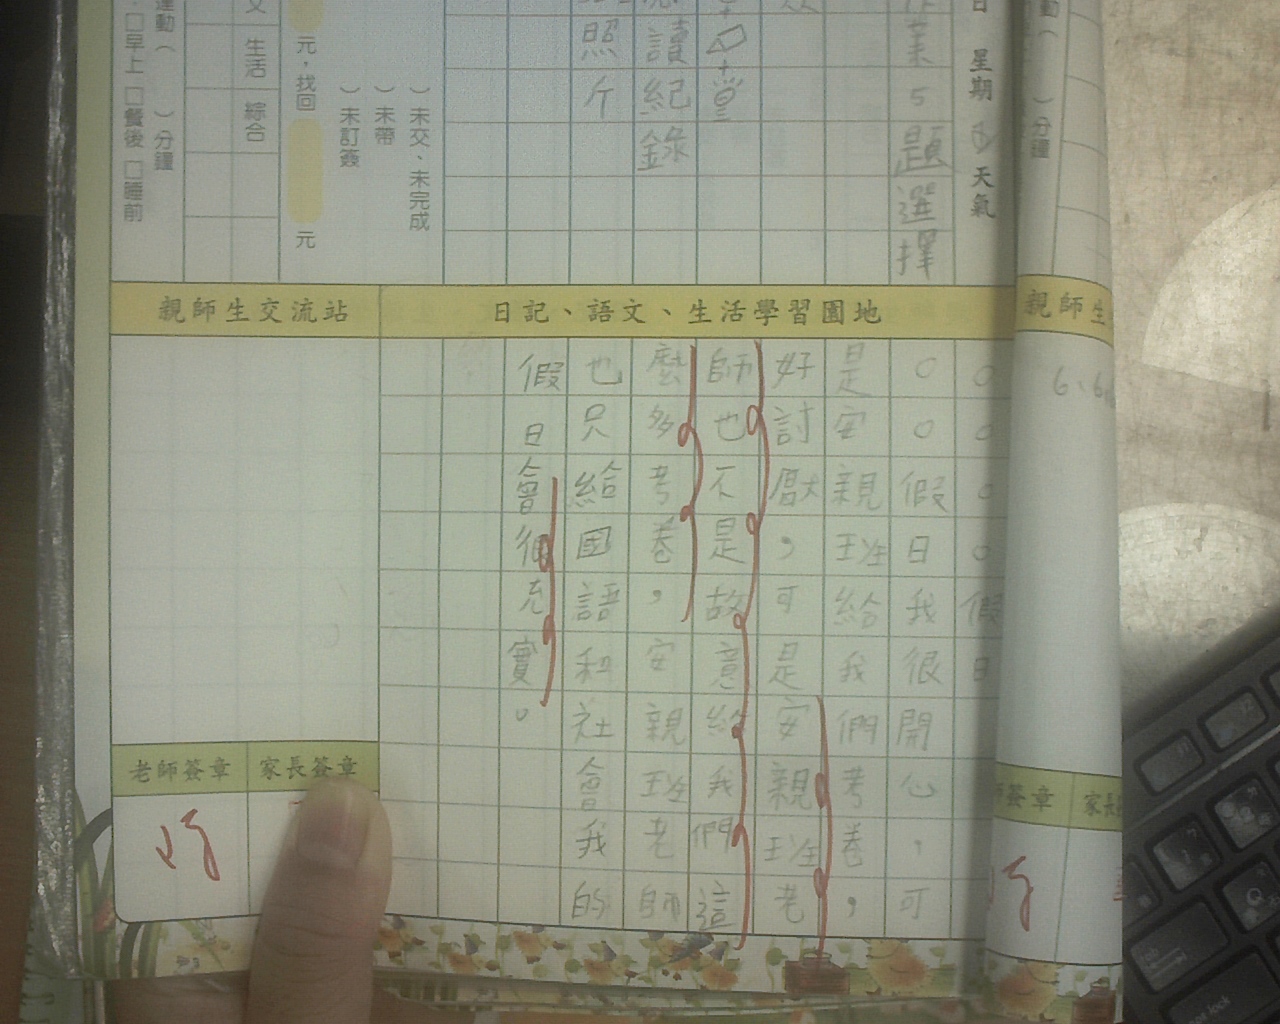 業5題選擇
讀紀錄
照
斤
日 星期 天氣
運動( )分鐘
□早上□餐後□睡前
生活
綜合
元,找回 元
)未訂簽
)未帶
)未交、未完成
動( )分鐘
親師生交流站
日記、語文、生活學習園地
親師生
○○○○假日
○○假日我很開心,可
是安親班給我們考卷,
好討厭,可是安親班老
師也不是故意給我們這
麼多考卷,安親班老師
也只給國語和社會我的
假日會很充實。
老師簽章
家長簽章
師簽章
家長